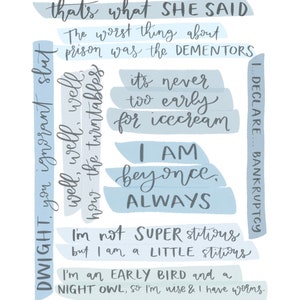 thats what SHE SAID
The worst thing about
prison was the DEMENTORS
DWIGHT, you ignorant slut
well, well, well,
how the turntables
it's never
too early
for icecream
I DECLARE... BANKRUPTCY
I AM
beyonce,
ALWAYS
I'm not SUPER stitious
but I am a LITTLE stitious
I'm an EARLY BIRD and a
NIGHT OWL, so I'm wise & I have worms.